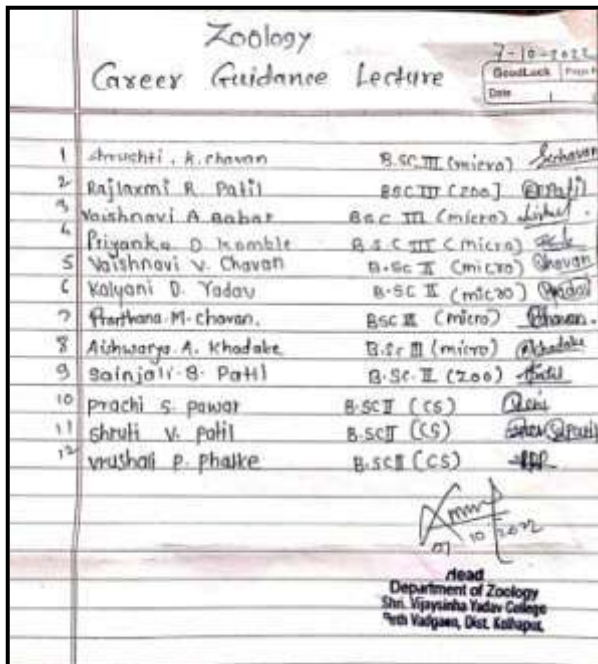 Zoology
7-10-2022
Career Guidance Lecture
GoodLuck Page N
Date
1 shrushti . k. chavan B.SC III (micro) Schavan
2 Rajlaxmi R. Patil BSC III (ZOO) Patil
3 Vaishnavi A. Babar B.SC III (micro)
4 Priyanka D. Kamble B.S.C III (micro)
5 Vaishnavi V. Chavan B.SC II (micro) Chavan
6 Kalyani D. Yadav B.SC II (micro) Yadav
7 Prarthana M. chavan. BSC II (micro) Chavan.
8 Aishwarya. A. Khadake B.Sc III (micro) Khadake
9 Sainjali S. Patil B.SC. II (ZOO)
10 prachi S. pawar B.SC II (CS)
11 shruti V. patil B.SC II (CS)
12 vrushali P. phalke B.SC II (CS)
07 10 2022
Head
Department of Zoology
Shri. Vijaysinha Yadav College
Peth Vadgaon, Dist. Kolhapur.